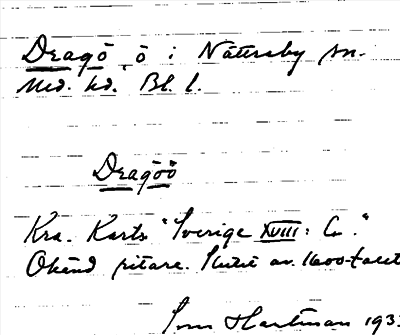 Dragö ö i Nättraby sn.
Med. hd. Bl. l.
Dragöö
Kra. Karta "Sverige XVIII: Cn."
Okänd ritare. Slutet av 1600-talet
Hartman 193